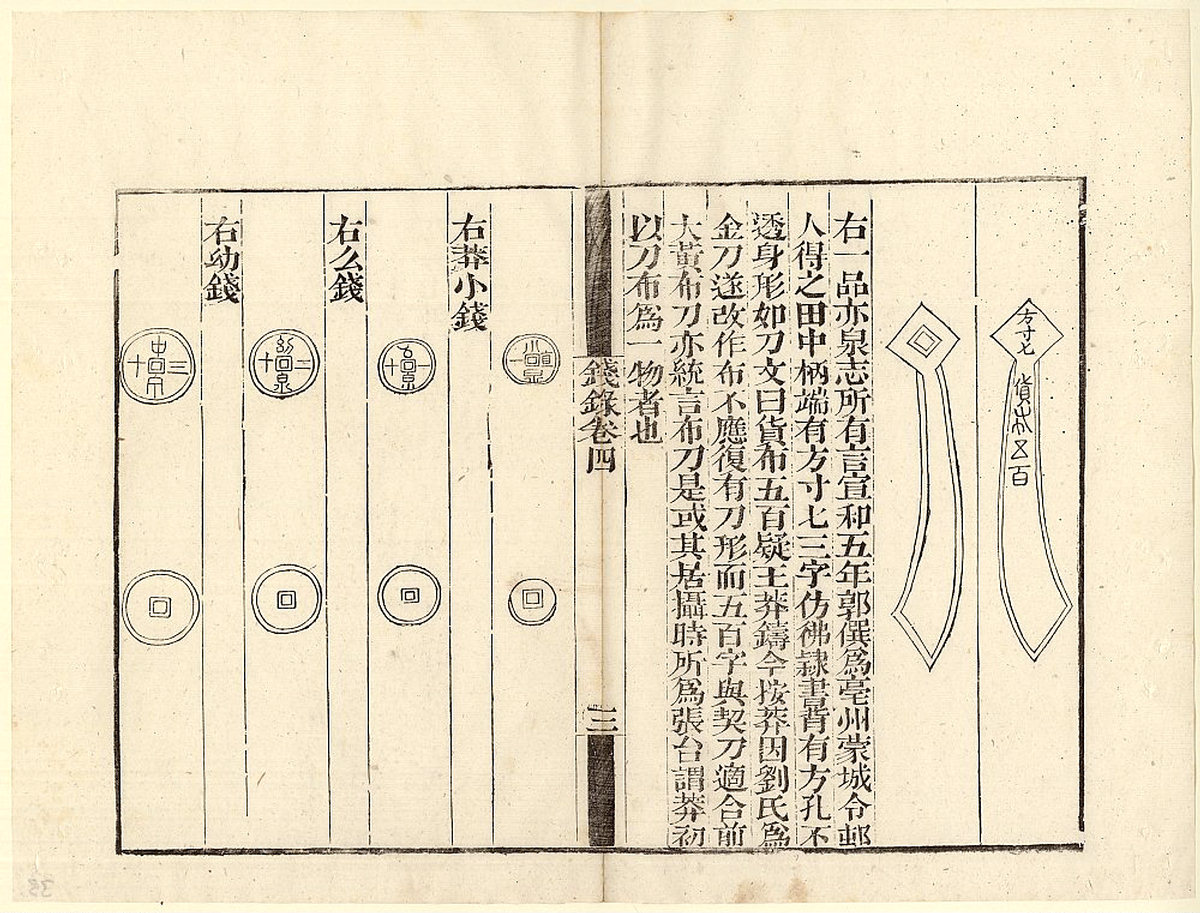 方寸七
貨布五百
右一品亦泉志所有言宣和五年郭僎爲亳州蒙城令邨
人得之田中柄端有方寸七三字仿彿隸書背有方孔不
透身形如刀文曰貨布五百疑王莽鑄今按莽因劉氏爲
金刀遂改作布不應復有刀形而五百字與契刀適合前
大黃布刀亦統言布刀是或其居攝時所爲張台謂莽初
以刀布爲一物者也
錢錄卷四
三
小泉直一
右莽小錢
么泉一十
右么錢
幼泉二十
右幼錢
中泉三十